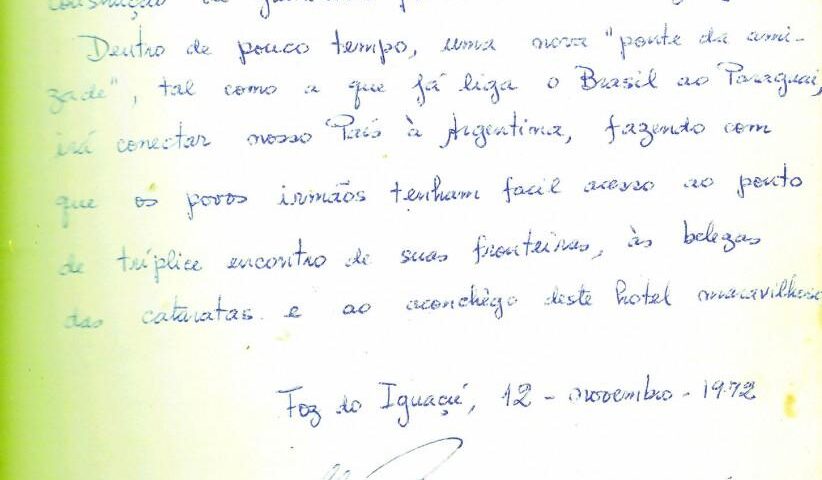 construção
Dentro de pouco tempo, uma nova "ponte da ami-
zade", tal como a que já liga o Brasil ao Paraguai,
irá conectar nosso País à Argentina, fazendo com
que os povos irmãos tenham facil acesso ao ponto
de tríplice encontro de suas fronteiras, às belezas
das cataratas e ao aconchêgo deste hotel maravilhoso
Foz do Iguaçú, 12 - novembro - 1972